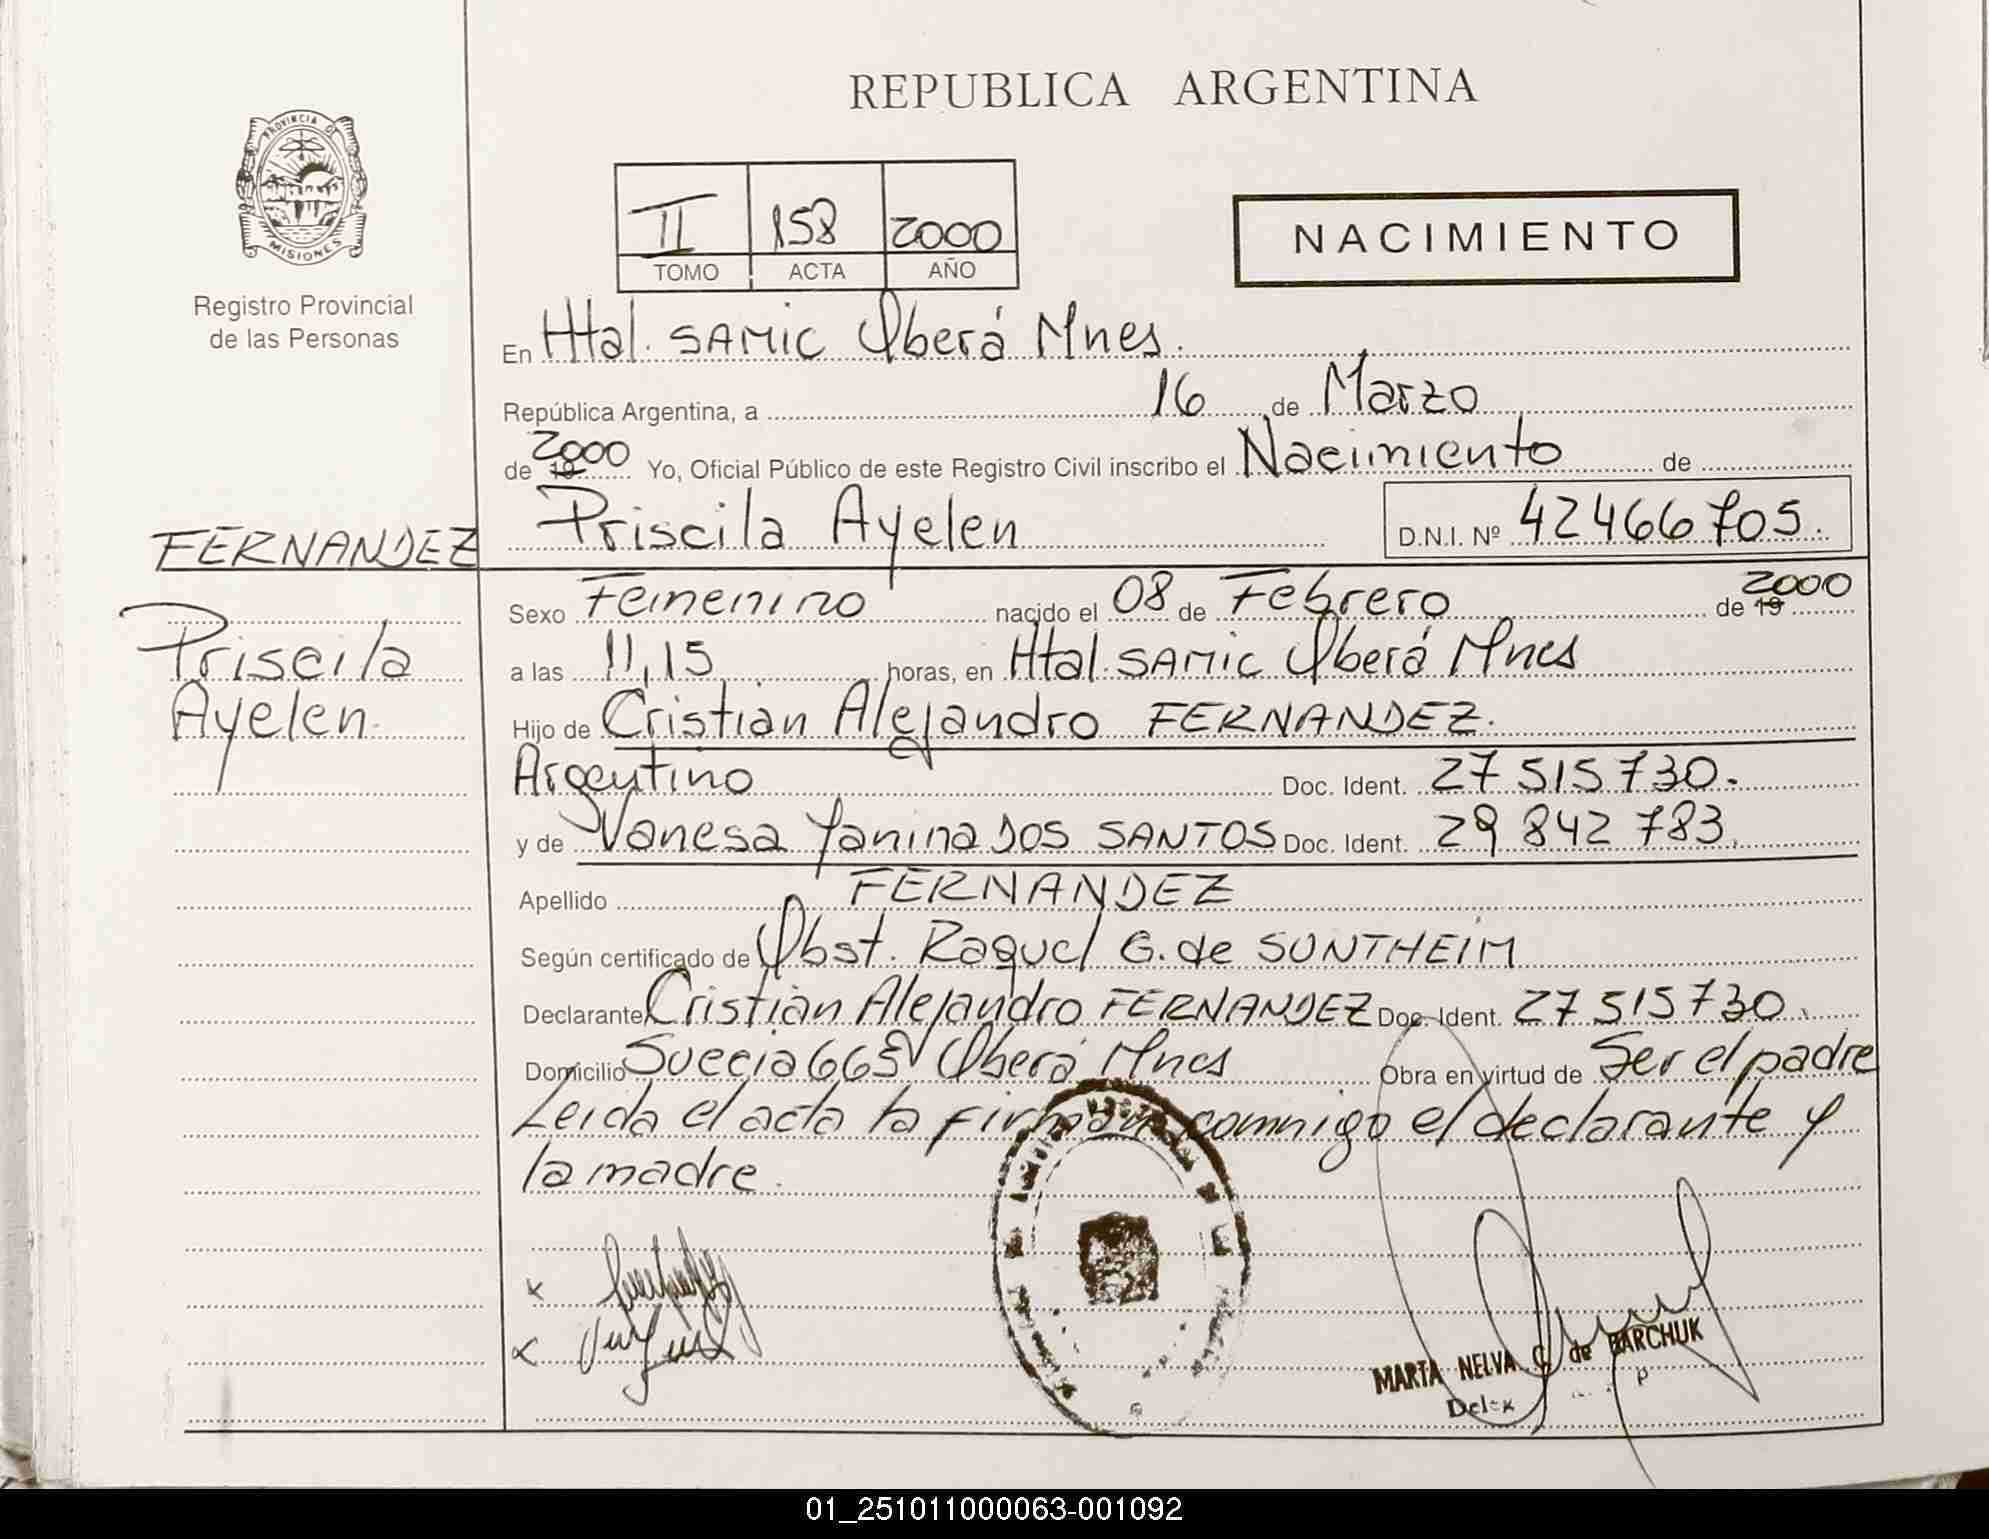 REPUBLICA ARGENTINA
PROVINCIA DE
MISIONES
Registro Provincial
de las Personas
II 158 2000
TOMO ACTA AÑO
NACIMIENTO
En Htal. SAMIC Oberá Mnes.
República Argentina, a 16 de Marzo
de 19 2000 Yo, Oficial Público de este Registro Civil inscribo el Nacimiento de
Priscila Ayelen D.N.I. Nº 42466705.
FERNANDEZ
Priscila
Ayelen
Sexo Femenino nacido el 08 de Febrero de 19 2000
a las 11,15 horas, en Htal. SAMIC Oberá Mnes
Hijo de Cristian Alejandro FERNANDEZ.
Argentino Doc. Ident. 27 515 730.
y de Vanesa Yanina DOS SANTOS Doc. Ident. 29 842 783
Apellido FERNANDEZ
Según certificado de Obst. Raquel G. de SONTHEIM
Declarante Cristian Alejandro FERNANDEZ Doc. Ident. 27 515 730.
Domicilio Suecia 665 Oberá Mnes Obra en virtud de Ser el padre
Leida el acta la firman conmigo el declarante y
la madre.
x
x
MARTA NELVA C. de BARCHUK
01_251011000063-001092